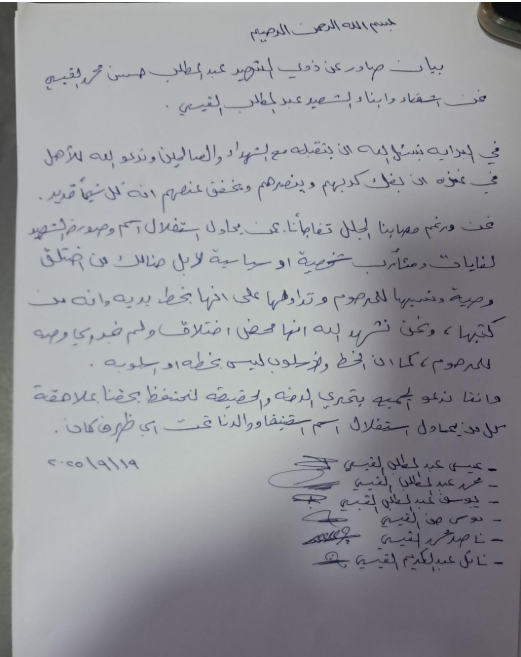 بسم الله الرحمن الرحيم
بيان صادر عن ذوي الشهيد عبد المطلب حسن محمد القيسي
نحن اشقاء وابناء الشهيد عبد المطلب القيسي .
في البداية نسئل الله ان يتقبله مع الشهداء والصالحين وندعو الله للأهل
في غزه ان يفك كربهم وينصرهم ويخفف عنهم انه لكل شيئاً قدير .
نحن ورغم مصابنا الجلل تفاجأنا عن يحاول استغلال اسم وصورة الشهيد
لغايات ومئآرب شخصية او سياسية لا بل هنالك من اختلق
وصية ونسبها للمرحوم وتداولها على انها بخط يديه وانه من
كتبها ، ونحن نشهد الله انها محض اختلاق ولم نجد اي وصية
للمرحوم ، كما ان الخط والاسلوب ليس بخطه او اسلوبه .
واننا ندعو الجميع بتحري الدقه والحقيقه لنحتفظ بحقنا بملاحقة
كل من يحاول استغلال اسم شقيقنا ووالدنا تحت اي ظرف كان .
٢٠٢٥/٩/١٩
- عيسى عبد المطلب القيسي
- محمد عبد المطلب القيسي
- يوسف عبد المطلب القيسي
- موسى حسن القيسي
- ناصر محمد القيسي
- نائل عبد الكريم القيسي